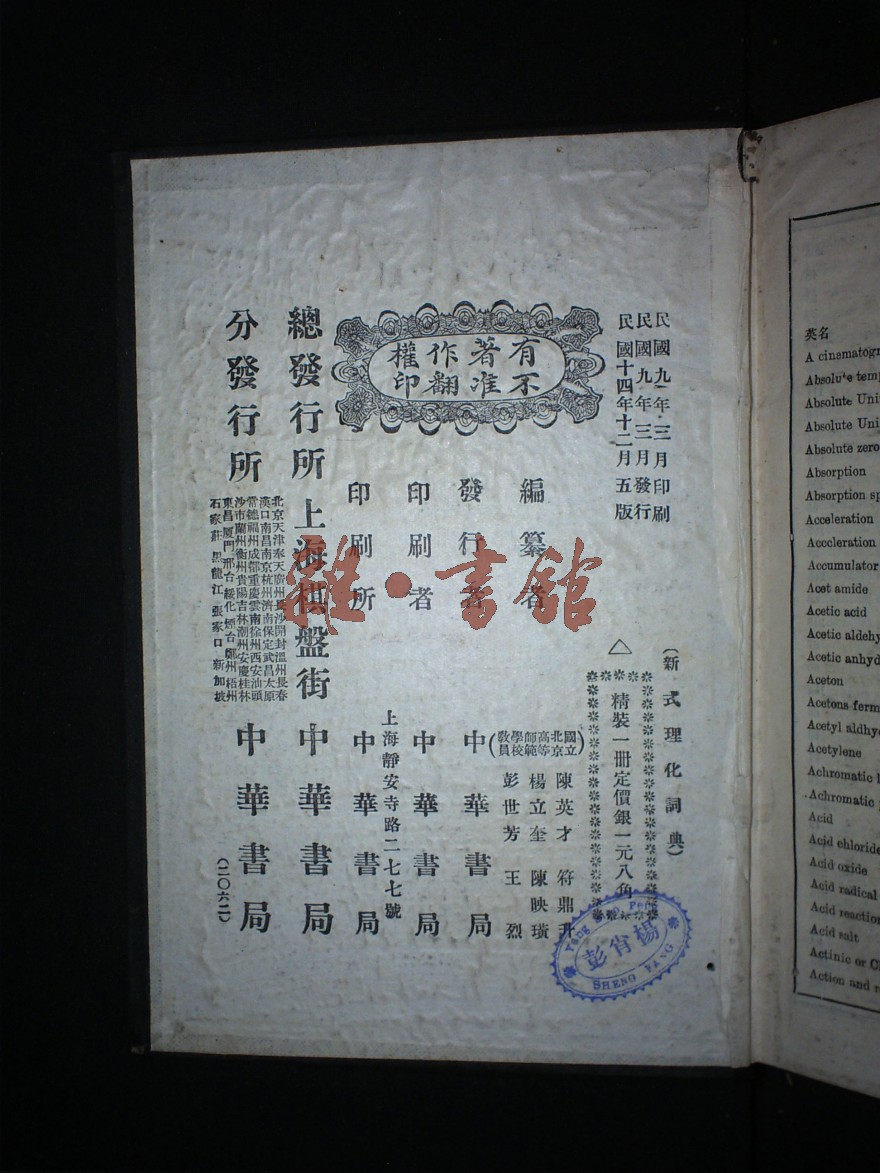 民國九年三月印刷
民國九年三月發行
民國十四年十二月五版
(新式理化詞典)
精裝一冊定價銀一元八角
有著作權
不准翻印
編纂者
國立北京高等師範學校教員
陳英才 符鼎升
楊立奎 陳映璜
彭世芳 王烈
發行者 中華書局
印刷者 中華書局
上海靜安寺路二七七號
印刷所 中華書局
總發行所 上海棋盤街 中華書局
分發行所
北京天津奉天廣州長沙開封溫州長春
漢口南昌南京杭州濟南保定武昌太原
常德福州成都重慶雲南徐州西安汕頭
沙市蘭州衡州貴陽吉林潮州安慶桂林
東昌廈門邢台綏化煙台鄭州梧州
石家莊 黑龍江 張家口 新加坡
中華書局
(二〇六二)
楊肖彭
SHENG FANG
雜·書館
英名
A cinematogr
Absolute temp
Absolute Uni
Absolute Uni
Absolute zero
Absorption
Absorption sp
Acceleration
Acceleration
Accumulator
Acet amide
Acetic acid
Acetic aldehy
Acetic anhyd
Aceton
Acetons ferm
Acetyl aldhy
Acetylene
Achromatic l
Achromatic
Acid
Acid chloride
Acid oxide
Acid radical
Acid reaction
Acid salt
Actinic or C
Action and r